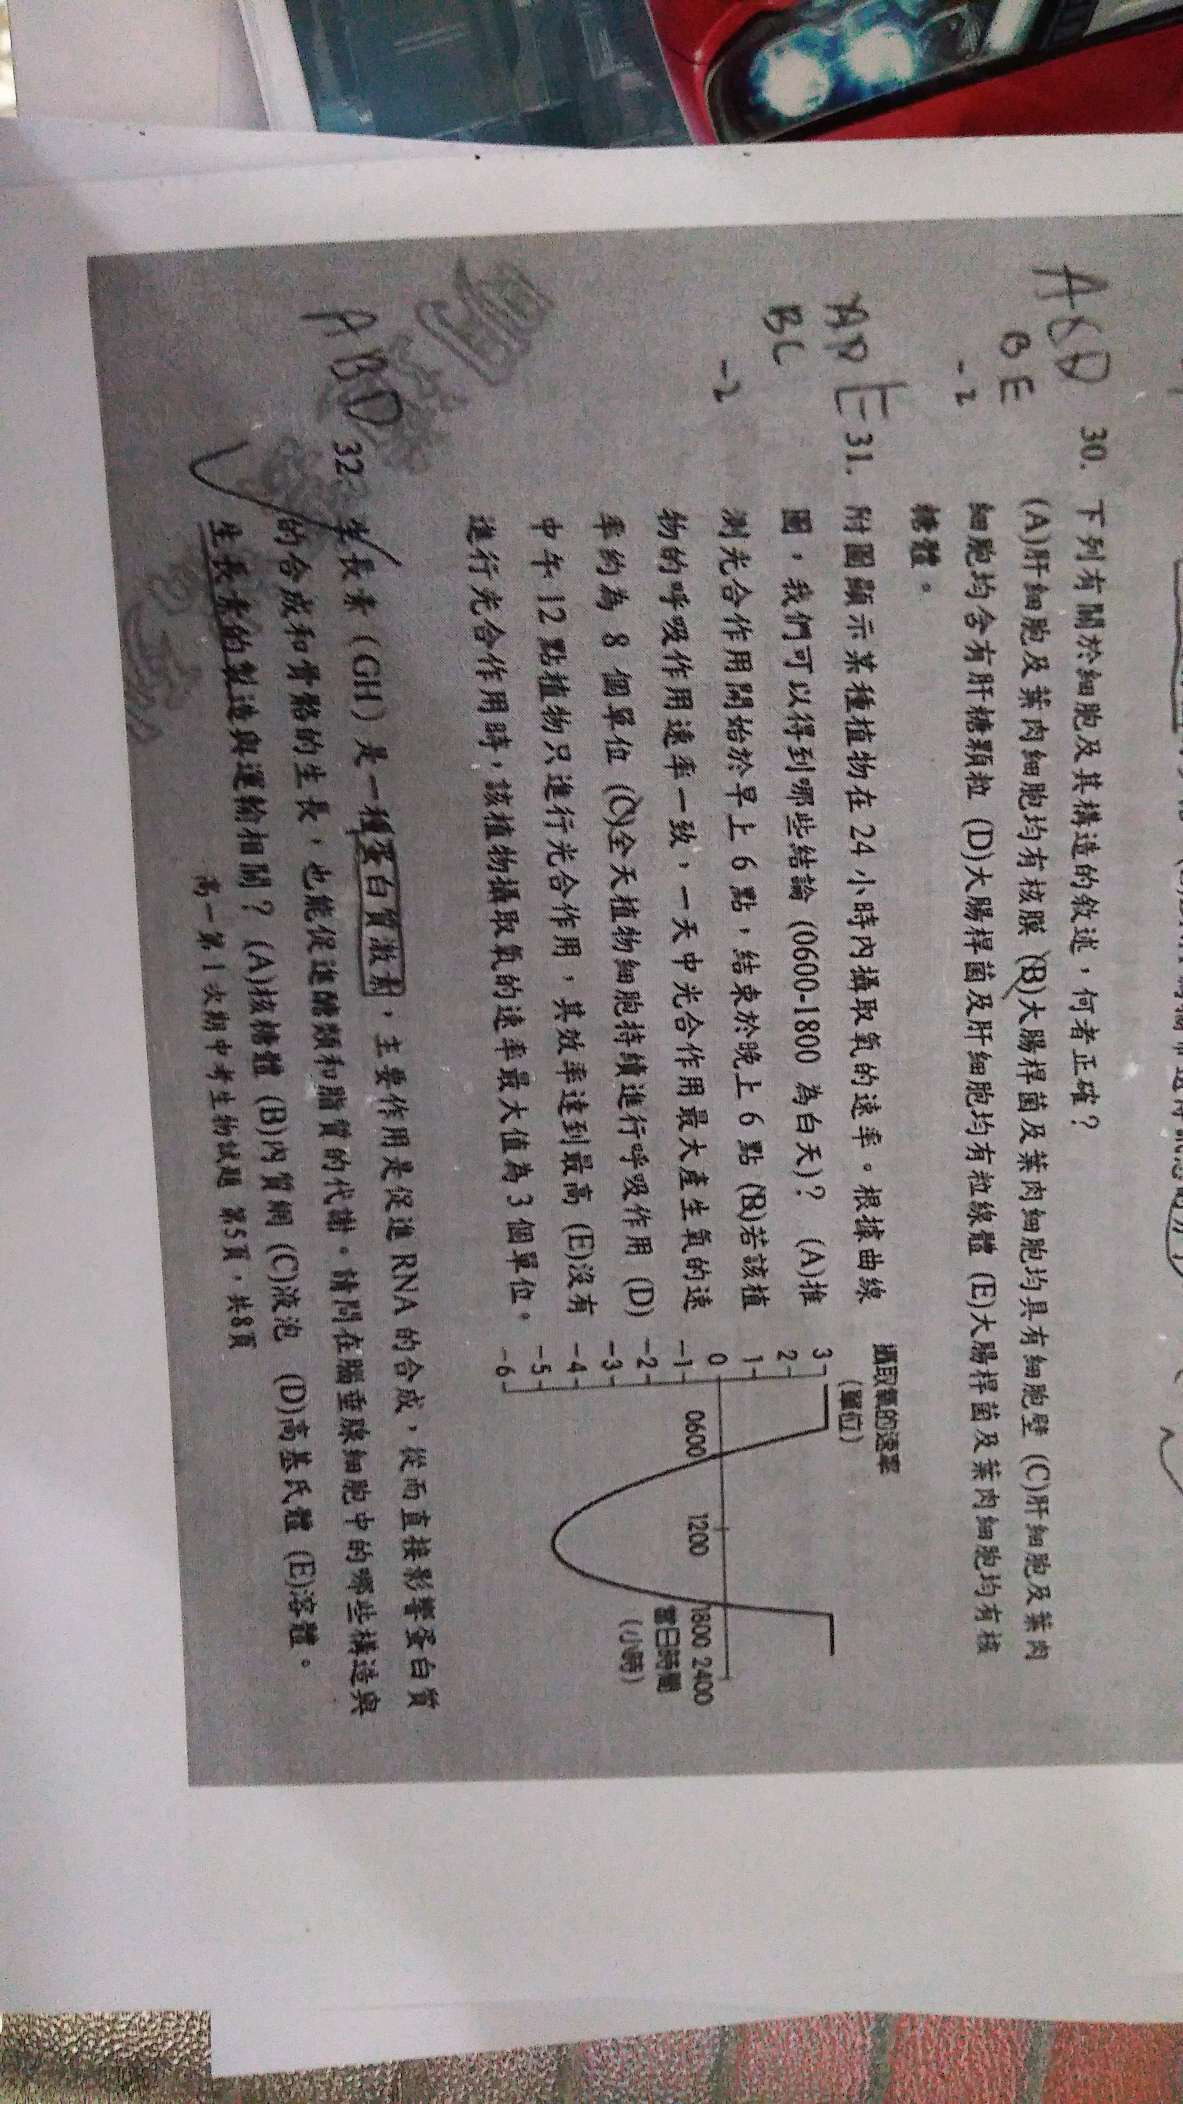 ACD
BE
-2
30. 下列有關於細胞及其構造的敘述，何者正確？
(A)肝細胞及葉肉細胞均有核膜 (B)大腸桿菌及葉肉細胞均具有細胞壁 (C)肝細胞及葉肉
細胞均含有肝糖顆粒 (D)大腸桿菌及肝細胞均有粒線體 (E)大腸桿菌及葉肉細胞均有核
糖體。
AD E
BC
-2
31. 附圖顯示某種植物在 24 小時內攝取氧的速率。根據曲線
圖，我們可以得到哪些結論 (0600-1800 為白天)？ (A)推
測光合作用開始於早上 6 點，結束於晚上 6 點 (B)若該植
物的呼吸作用速率一致，一天中光合作用最大產生氧的速
率約為 8 個單位 (C)全天植物細胞持續進行呼吸作用 (D)
中午 12 點植物只進行光合作用，其效率達到最高 (E)沒有
進行光合作用時，該植物攝取氧的速率最大值為 3 個單位。
攝取氧的速率
(單位)
3
2
1
0
-1
-2
-3
-4
-5
-6
0600 1200 1800 2400
當日時間
(小時)
ABD
32. 生長素（GH）是一種蛋白質激素，主要作用是促進 RNA 的合成，從而直接影響蛋白質
的合成和骨骼的生長，也能促進醣類和脂質的代謝。請問在腦垂腺細胞中的哪些構造與
生長素的製造與運輸相關？ (A)核糖體 (B)內質網 (C)液泡 (D)高基氏體 (E)溶體。
高一第 1 次期中考生物試題 第5頁，共8頁